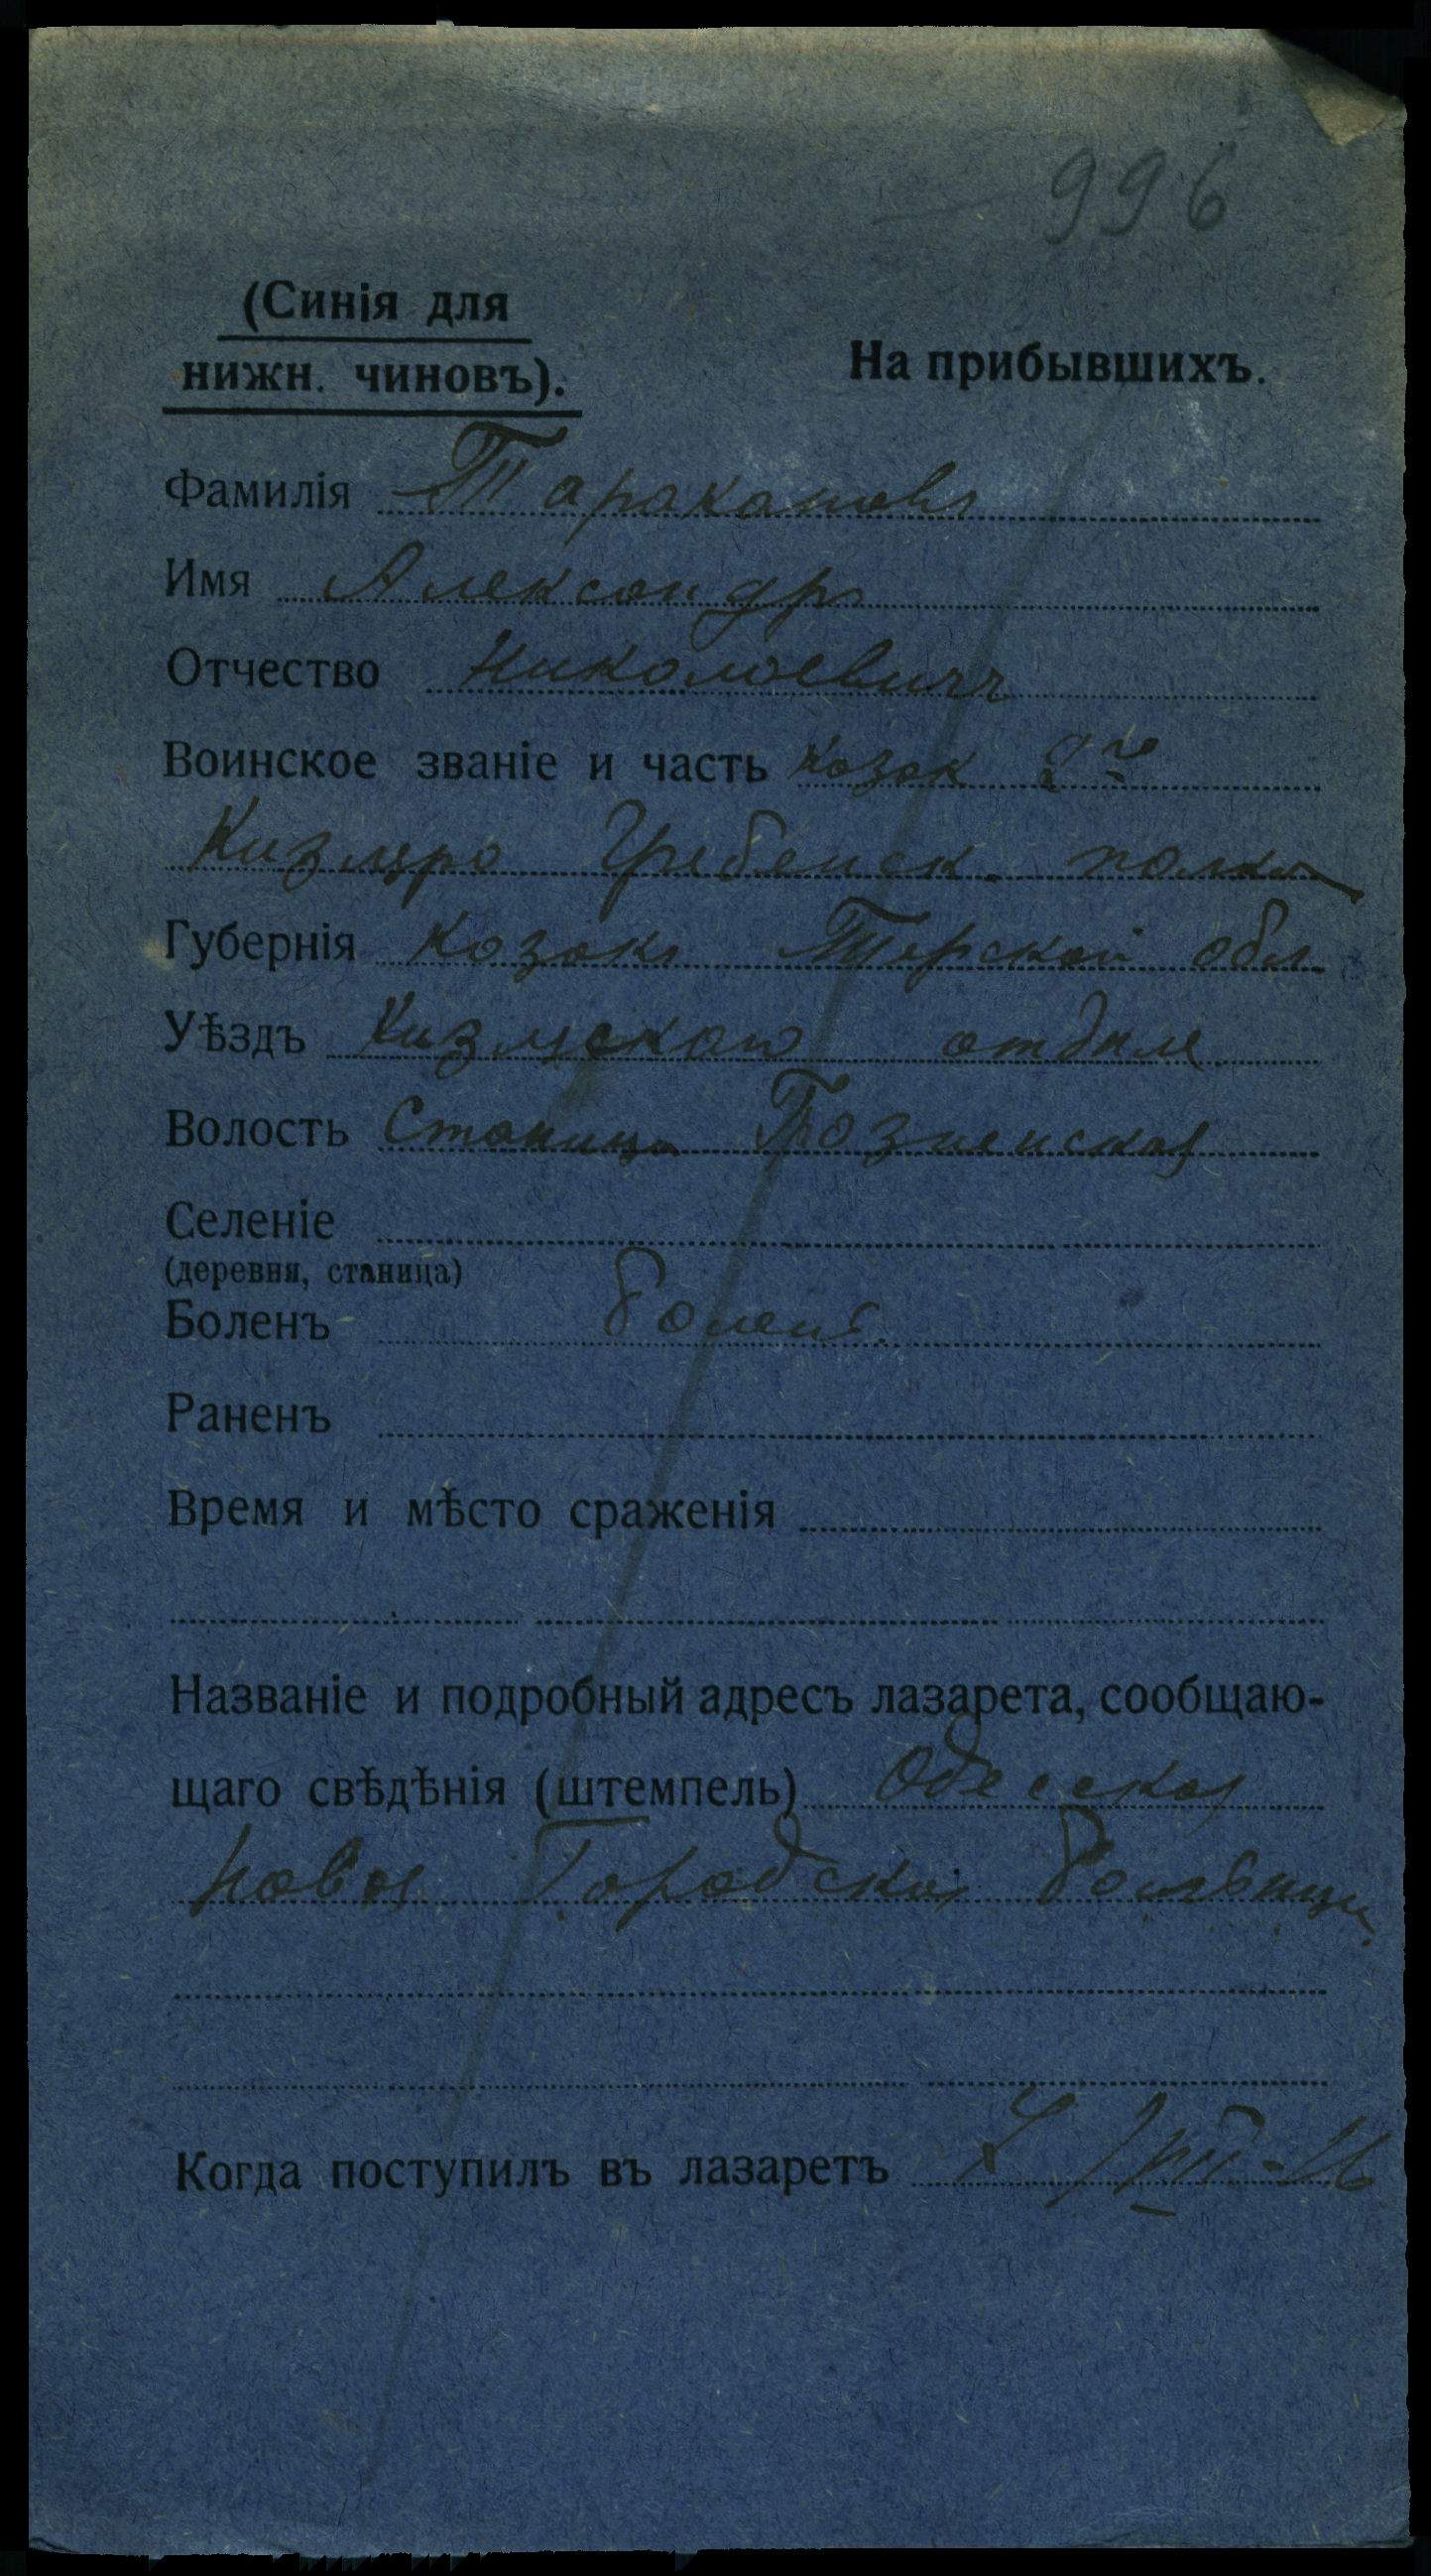 996
(Синія для
нижн. чиновъ).
На прибывшихъ.
Фамилія Таракановъ
Имя Александръ
Отчество Николаевичъ
Воинское званіе и часть Козак 2го
Кизляро Гребенск. полка
Губернія Козакъ Терской обл
Уѣздъ отдела
Волость Станица
Селеніе
(деревня, станица)
Боленъ боленъ.
Раненъ
Время и мѣсто сраженія
Названіе и подробный адресъ лазарета, сообщаю-
щаго свѣдѣнія (штемпель) Одесская
Новая Городская больница
Когда поступилъ въ лазаретъ VIII-16